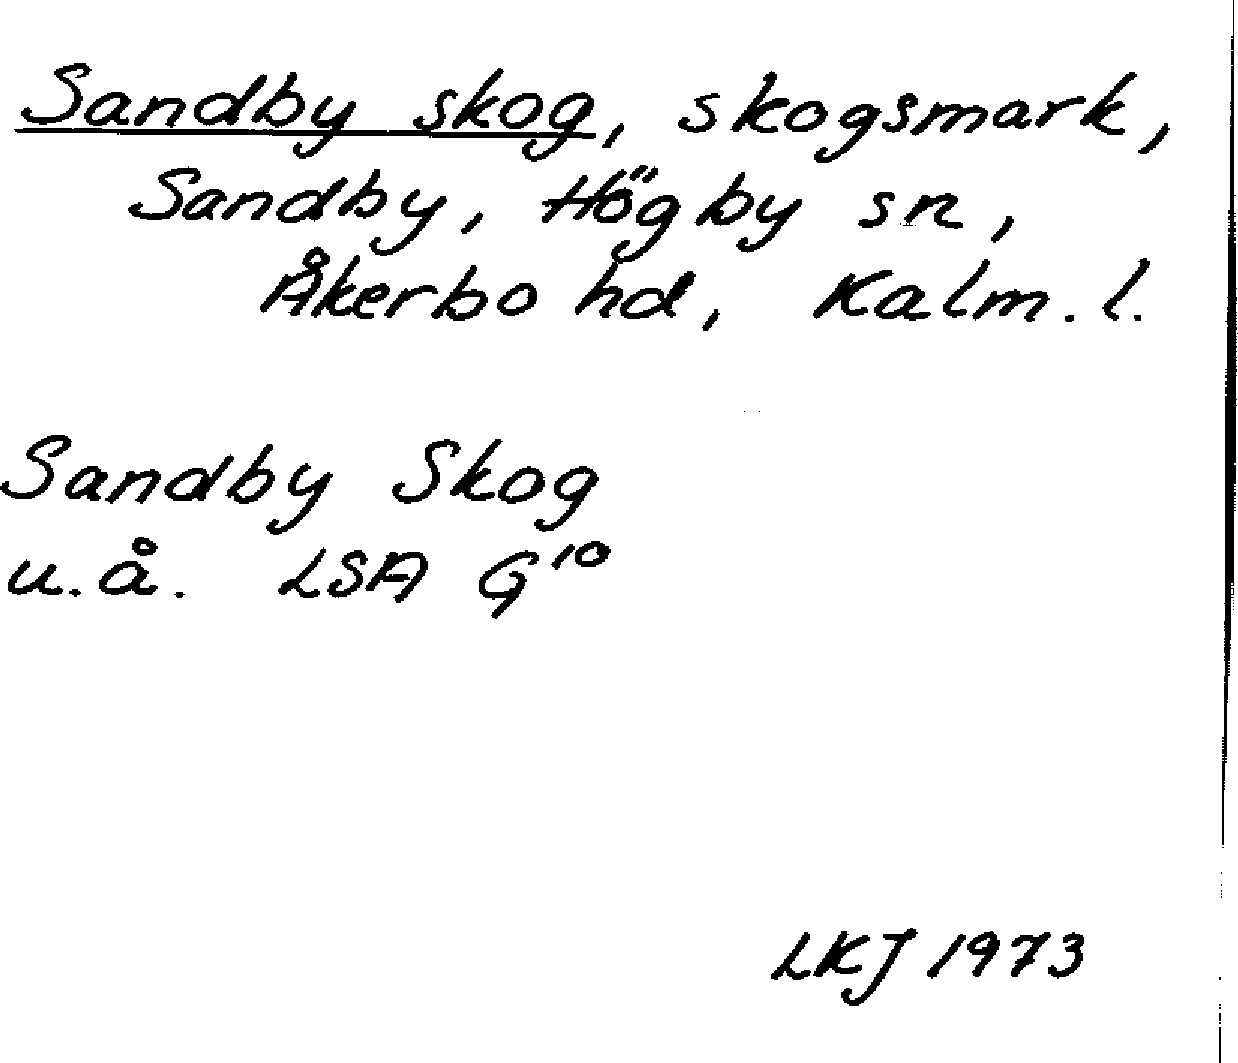 Sandby skog, skogsmark,
Sandby, Högby sn,
Åkerbo hd, Kalm. l.
Sandby Skog
u.å. LSA G¹⁰
LKJ 1973